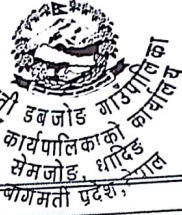 ती डबजोङ गाउँपालिका
कार्यपालिकाको कार्यालय
सेमजोङ, धादिङ
बागमती प्रदेश, नेपाल